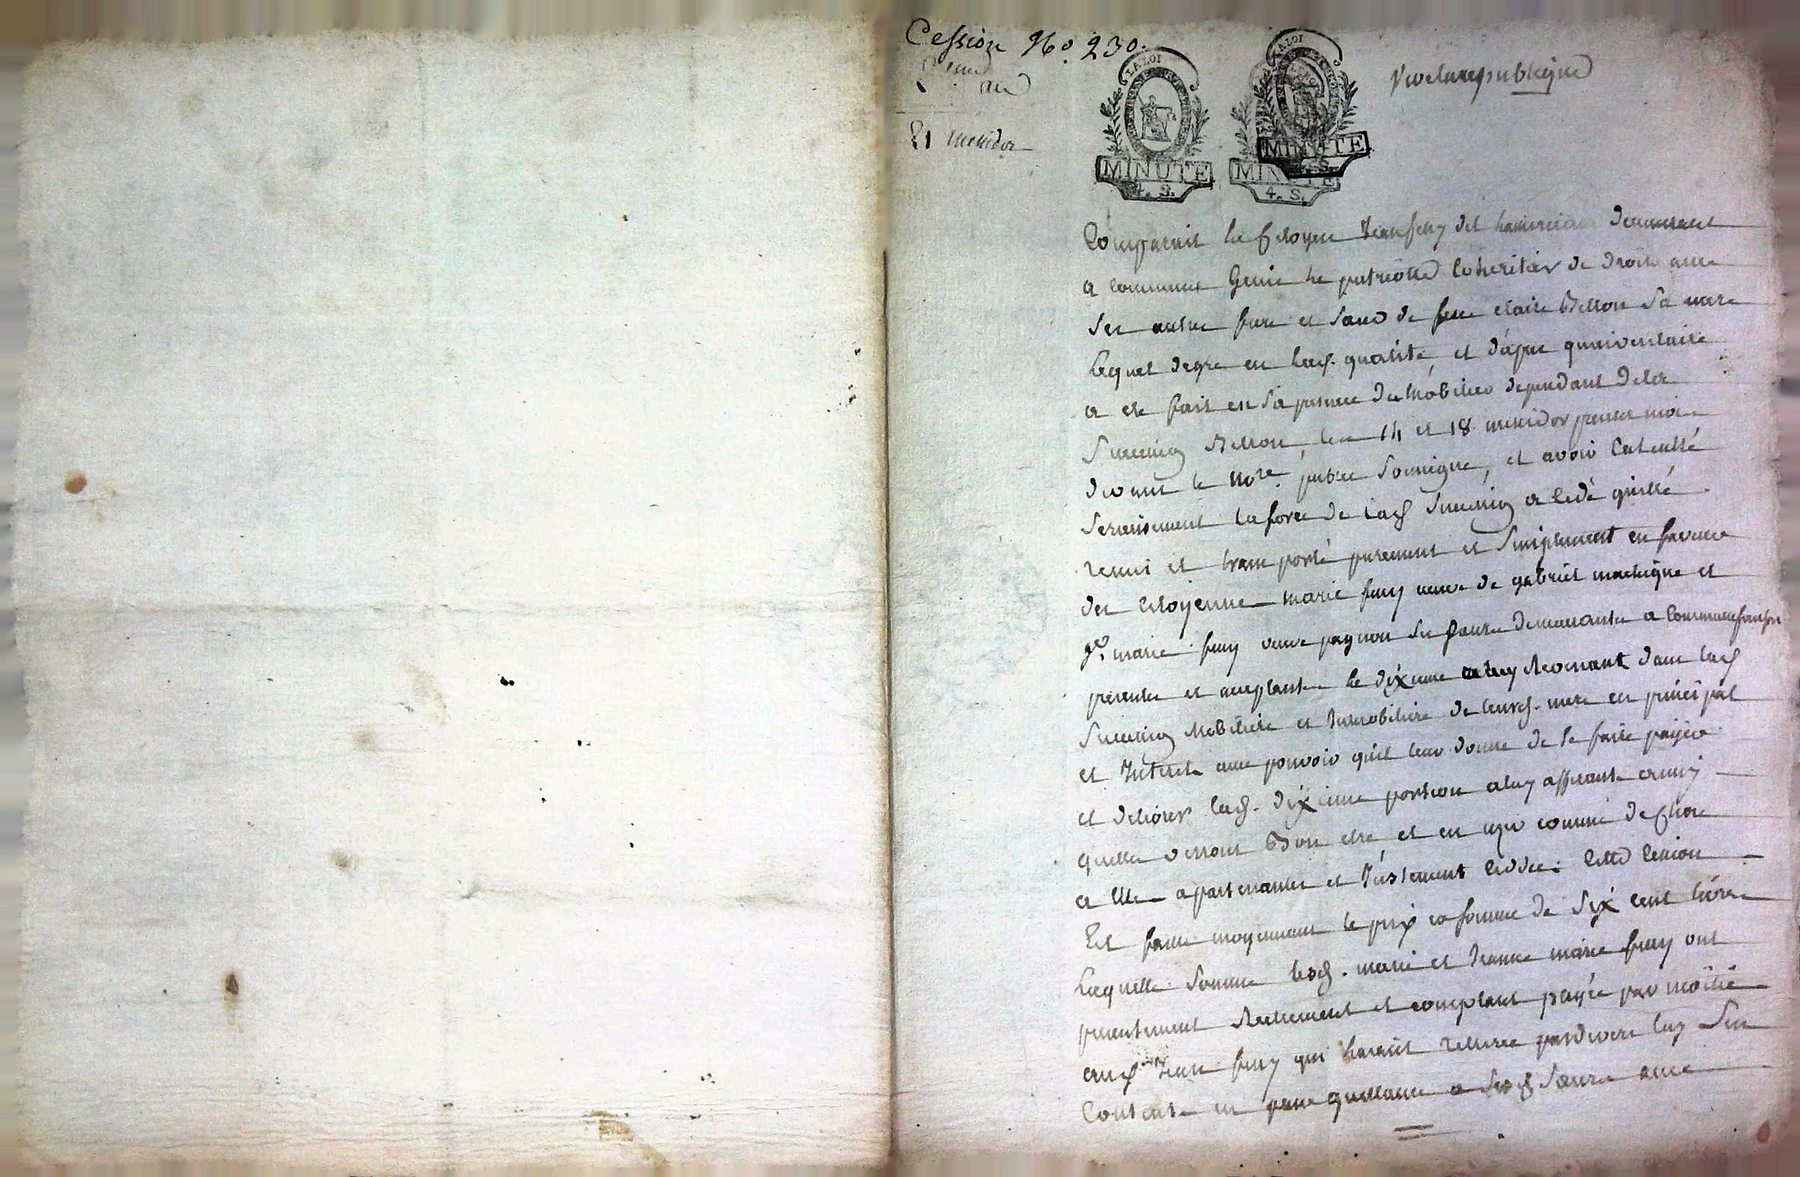 Cession No. 230.
21 messidor
LA LOI
MINUTE
4. S.
LA LOI
MINUTE
MINUTE
4. S.
Vive la republique
Comparait le Citoyen Jean fcuy dit demeurant
a commune Genie le patriotte Coheritier de droit avec
ses autres frere et soeur de feue claire Bellon Sa mere
Lequel degre en lad. qualité et d'apres qu'inventaire
a ete fait en Sa presence du Mobilier dependant dela
Succession Bellon les 14 et 18 messidor present mois
devant le Nore. public Soussigne, et avoir Calculle
Serieusement la force de lad Succession a Cedé quitté
remis et transporté purement et Simplement en faveur
des Citoyenne marie veuve de gabriel et
marie veuve pagnon Ses Soeurs demeurante a Commune
presente et acceptante le dixieme aluy Revenant dans lad
Succession Mobiliere et Immobiliere de leurd. mere en principal
et Interets avec pouvoir quil leur donne de Se faire payer
et delivrer lad. dixieme portion aluy afferante ainsy
quelles verront Bon etre et en user comme de Chose
a Elle apartenantes et Justement Cedées. Cette Cession
Est faitte moyennant le prix et somme de Six cent livres
Laquelle Somme lesd. marie et Jeanne marie ont
presentement Reelement et comptant payée par moitié
aud. Jean qui la retirée pardevers luy Sen
Contente en passe quittance a Sesd Soeurs avec